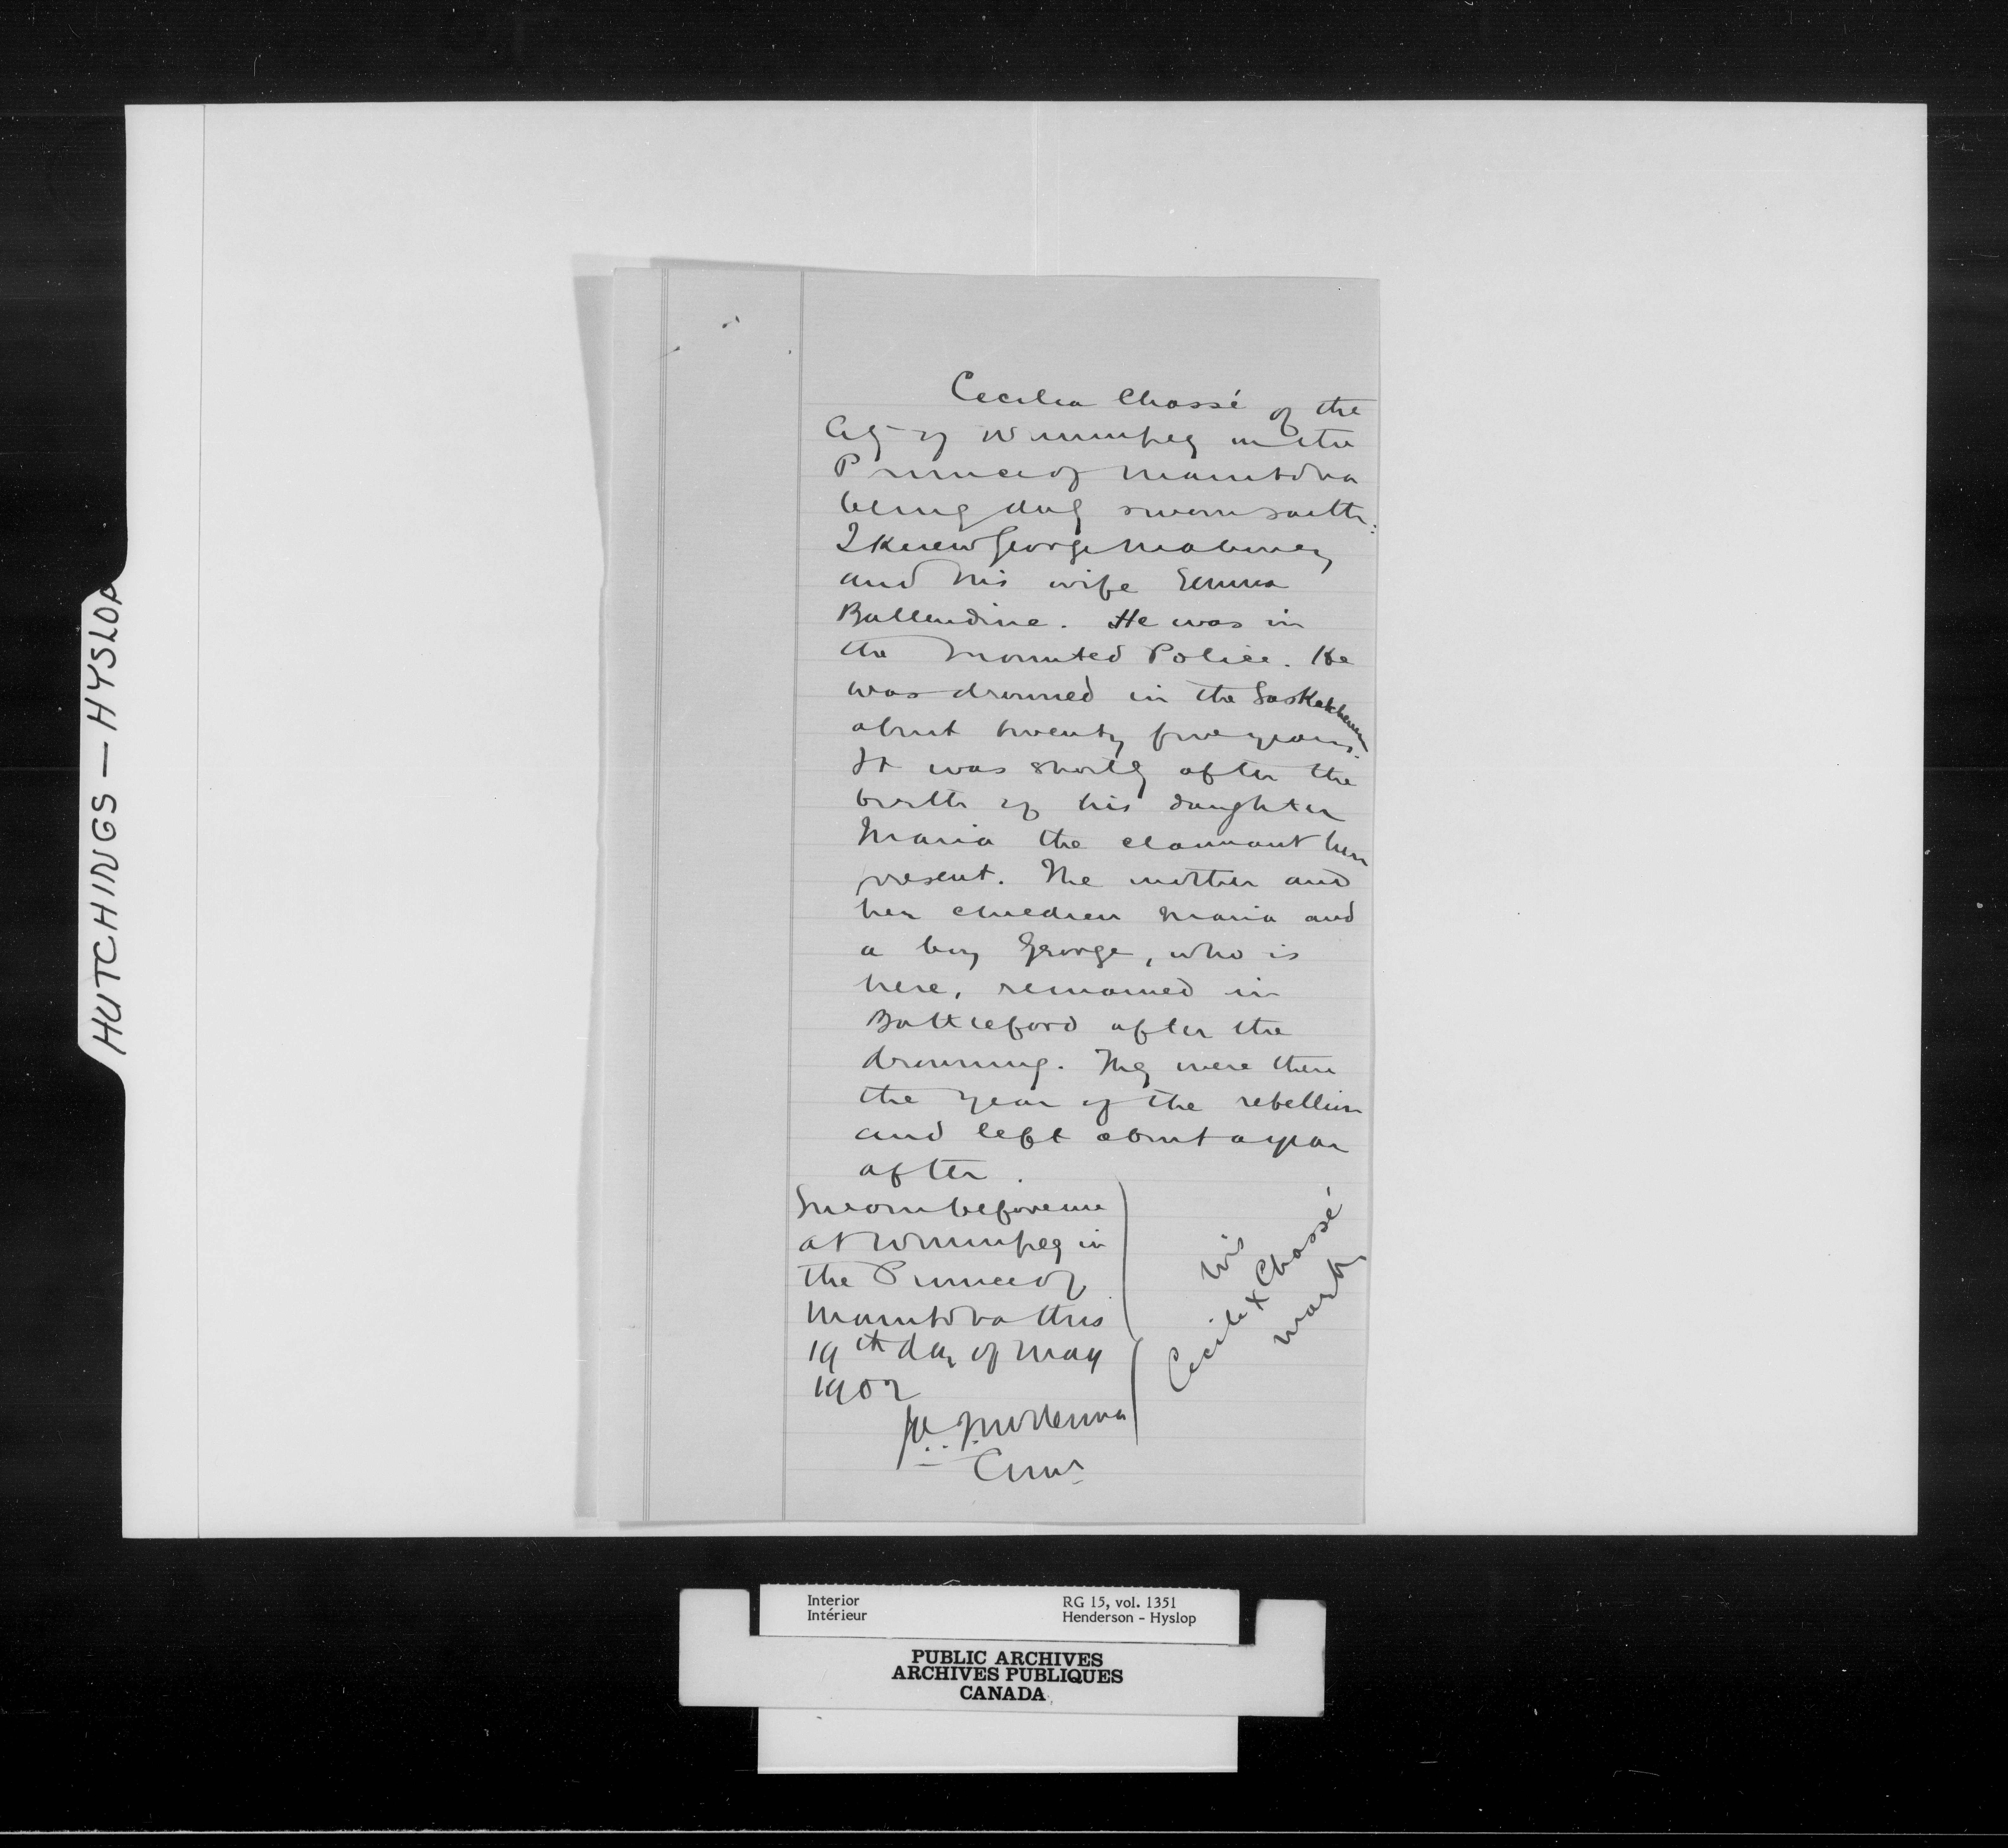 Cecilia Chassé of the
City of Winnipeg in the
Province of Manitoba
being duly sworn saith:
I knew George Mahoney
and his wife Emma
Ballendine. He was in
the Mounted Police. He
was drowned in the Saskatchewan
about twenty five years.
It was shortly after the
birth of his daughter
Maria the claimant here
present. The mother and
her children Maria and
a boy George, who is
here, remained in
Battleford after the
drowning. They were there
the year of the rebellion
and left about a year
after.
Sworn before me
at Winnipeg in
the Province of
Manitoba this
19th day of May
1902
McKenna
Comr
his
Cecile X Chassé
mark
HUTCHINGS — HYSLOP
Interior
Intérieur
RG 15, vol. 1351
Henderson - Hyslop
PUBLIC ARCHIVES
ARCHIVES PUBLIQUES
CANADA